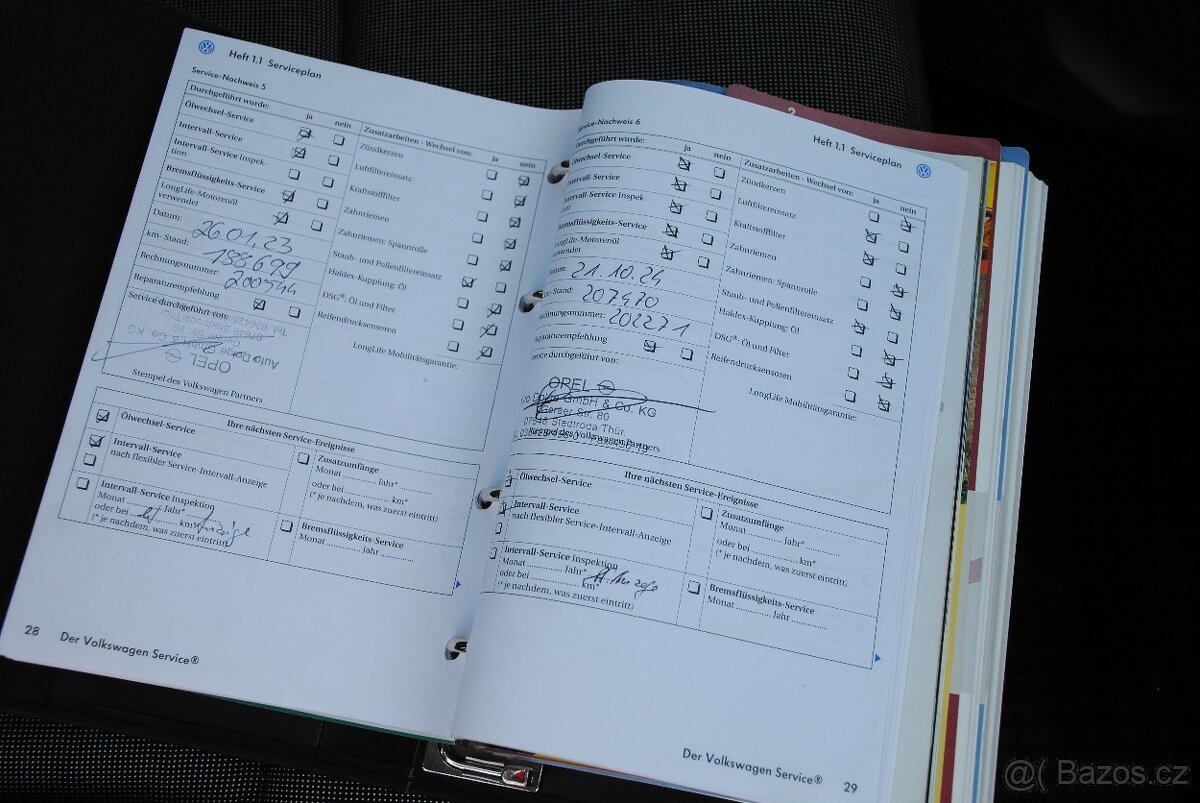 Heft 1.1 Serviceplan
Service-Nachweis 5
Durchgeführt wurde:
ja nein
Ölwechsel-Service
Intervall-Service
Intervall-Service Inspek-
tion
Bremsflüssigkeits-Service
LongLife-Motorenöl
verwendet
Datum: 26.01.23
km-Stand: 188.699
Rechnungsnummer: 200544
Reparaturempfehlung
Service durchgeführt von:
OPEL
Stempel des Volkswagen Partners
Zusatzarbeiten - Wechsel von:
ja nein
Zündkerzen
Luftfiltereinsatz
Kraftstofffilter
Zahnriemen
Zahnriemen: Spannrolle
Staub- und Pollenfiltereinsatz
Haldex-Kupplung: Öl
DSG®: Öl und Filter
Reifendrucksensoren
LongLife Mobilitätsgarantie:
Ihre nächsten Service-Ereignisse
Ölwechsel-Service
Intervall-Service
nach flexibler Service-Intervall-Anzeige
Intervall-Service Inspektion
Monat ............ Jahr* ............
oder bei ............ km* Anzeige
(* je nachdem, was zuerst eintritt)
Zusatzumfänge
Monat ............ Jahr* ............
oder bei ............ km*
(* je nachdem, was zuerst eintritt)
Bremsflüssigkeits-Service
Monat ............ Jahr ............
28 Der Volkswagen Service®
2
Heft 1.1 Serviceplan
Service-Nachweis 6
Durchgeführt wurde:
ja nein
Ölwechsel-Service
Intervall-Service
Intervall-Service Inspek
Bremsflüssigkeits-Service
LongLife-Motorenöl
verwendet
21.10.24
207470
202271
Reparaturempfehlung
Service durchgeführt von:
OPEL
GmbH & Co. KG
Geraer Str. 80
07646 Stadtroda/Thür.
Stempel des Volkswagen Partners
Zusatzarbeiten - Wechsel von:
ja nein
Zündkerzen
Luftfiltereinsatz
Kraftstofffilter
Zahnriemen
Zahnriemen: Spannrolle
Staub- und Pollenfiltereinsatz
Haldex-Kupplung: Öl
DSG®: Öl und Filter
Reifendrucksensoren
LongLife Mobilitätsgarantie:
Ihre nächsten Service-Ereignisse
Ölwechsel-Service
Intervall-Service
nach flexibler Service-Intervall-Anzeige
Intervall-Service Inspektion
Monat ............ Jahr*
oder bei ............ km* Anzeige
(* je nachdem, was zuerst eintritt)
Zusatzumfänge
Monat ............ Jahr ............
oder bei ............ km*
(* je nachdem, was zuerst eintritt)
Bremsflüssigkeits-Service
Monat ............ Jahr ............
Der Volkswagen Service® 29
@( Bazos.cz